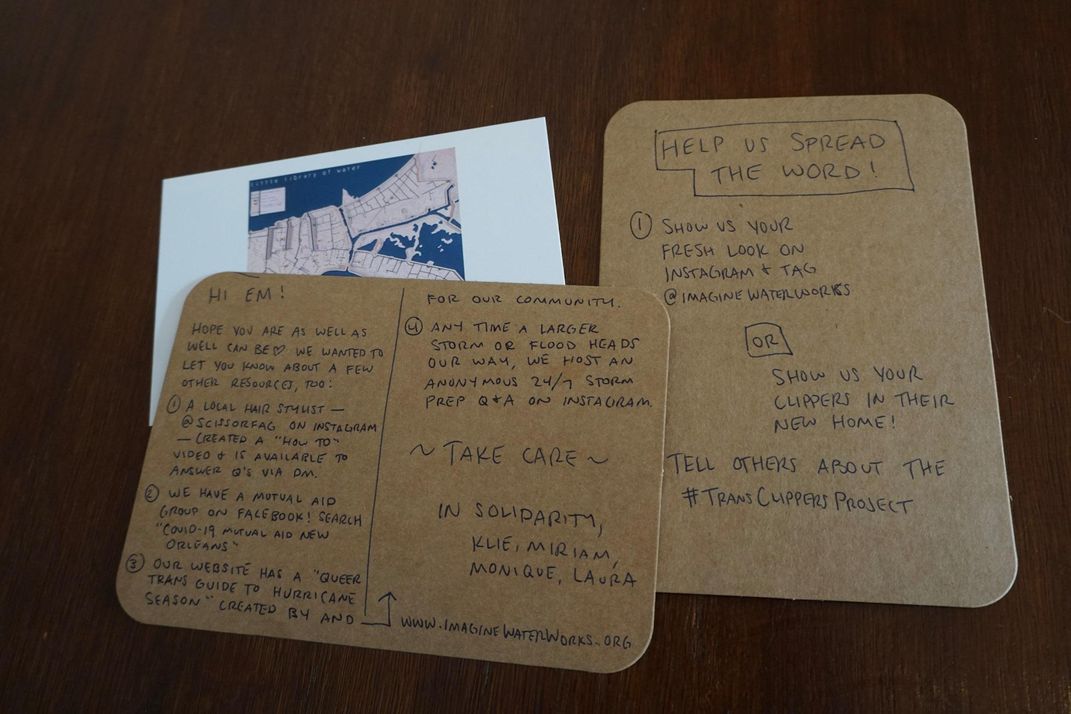 Little library of water
HI EM!
HOPE YOU ARE AS WELL AS
WELL CAN BE♡ WE WANTED TO
LET YOU KNOW ABOUT A FEW
OTHER RESOURCES, TOO:
① A LOCAL HAIR STYLIST —
@SCISSORFAG ON INSTAGRAM
— CREATED A "HOW TO"
VIDEO & IS AVAILABLE TO
ANSWER Q'S VIA DM.
② WE HAVE A MUTUAL AID
GROUP ON FACEBOOK! SEARCH
"COVID-19 MUTUAL AID NEW
ORLEANS"
③ OUR WEBSITE HAS A "QUEER
TRANS GUIDE TO HURRICANE
SEASON" CREATED BY AND
FOR OUR COMMUNITY.
④ ANY TIME A LARGER
STORM OR FLOOD HEADS
OUR WAY, WE HOST AN
ANONYMOUS 24/7 STORM
PREP Q&A ON INSTAGRAM.
~ TAKE CARE ~
IN SOLIDARITY,
KLIE, MIRIAM,
MONIQUE, LAURA
WWW.IMAGINEWATERWORKS.ORG
HELP US SPREAD
THE WORD!
① SHOW US YOUR
FRESH LOOK ON
INSTAGRAM & TAG
@IMAGINEWATERWORKS
OR
SHOW US YOUR
CLIPPERS IN THEIR
NEW HOME!
TELL OTHERS ABOUT THE
#TRANSCLIPPERSPROJECT